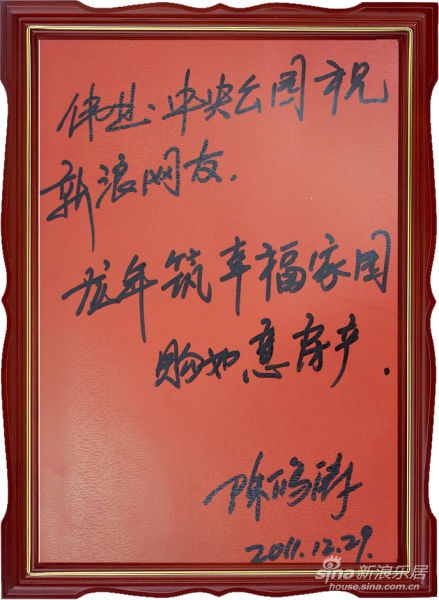 伟业·中央公园祝
新浪网友.
龙年筑幸福家园
购如意房产.
陈鸿涛
2011.12.29.
sina 新浪乐居
house.sina.com.cn